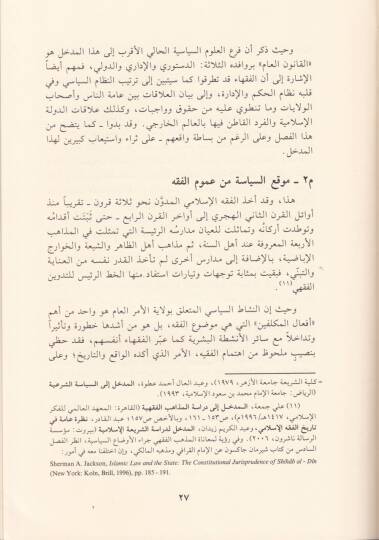 وحيث ذكر أن فرع العلوم السياسية الحالي الأقرب إلى هذا المدخل هو
«القانون العام» بروافده الثلاثة: الدستوري والإداري والدولي، فمهم أيضاً
الإشارة إلى أن الفقهاء قد تطرقوا كما سيتبين إلى ترتيب النظام السياسي وفي
قلبه نظام الحكم والإدارة، وإلى بيان العلاقات بين عامة الناس وأصحاب
الولايات وما تنطوي عليه من حقوق وواجبات، وكذلك علاقات الدولة
الإسلامية والفرد القاطن فيها بالعالم الخارجي. وقد بدوا ـ كما يتضح من
هذا الفصل وعلى الرغم من بساطة واقعهم ـ على ثراء واستيعاب كبيرين لهذا
المدخل.
م٢ ـ موقع السياسة من عموم الفقه
هذا، وقد أخذ الفقه الإسلامي المدوَّن نحو ثلاثة قرون ـ تقريباً منذ
أوائل القرن الثاني الهجري إلى أواخر القرن الرابع ـ حتى ثَبَتَت أقدامُه
وتوطدت أركانُه وتمايزت للعيان مدارسُه الرئيسة التي تمثلت في المذاهب
الأربعة المعروفة عند أهل السنة، ثم مذاهب أهل الظاهر والشيعة والخوارج
الإباضية، بالإضافة إلى مدارس أخرى لم تأخذ القدر نفسه من العناية
والتبنّي، فبقيت بمثابة توجهات وتيارات استفاد منها الخط الرئيس للتدوين
الفقهي(١١).
وحيث إن النشاط السياسي المتعلق بولاية الأمر العام هو واحد من أهم
«أفعال المكلفين» التي هي موضوع الفقه، بل هو من أشدها خطورة وتأثيراً
وتداخلاً مع سائر الأنشطة البشرية كما عبّر الفقهاء أنفسهم، فقد حظي
بنصيبٍ ملحوظ من اهتمام الفقيه، الأمر الذي أكده الواقع والتاريخ؛ وعلى
= كلية الشريعة جامعة الأزهر، ١٩٧٩)، وعبد العال أحمد عطوة، المدخل إلى السياسة الشرعية
(الرياض: جامعة الإمام محمد بن سعود الإسلامية، ١٩٩٣).
(١١) علي جمعة، المدخل إلى دراسة المذاهب الفقهية (القاهرة: المعهد العالمي للفكر
الإسلامي، ١٤١٧هـ/١٩٩٦م)، ص١٥٣ـ ١٦١، وبالأخص ص١٥٧؛ عبد القادر، نظرة عامة في
تاريخ الفقه الإسلامي، وعبد الكريم زيدان، المدخل لدراسة الشريعة الإسلامية (بيروت: مؤسسة
الرسالة ناشرون، ٢٠٠٦). وفي رؤية لمعاناة المذهب الفقهي جراء الأوضاع السياسية، انظر الفصل
السادس من كتاب شيرمان جاكسون عن الإمام القرافي ومذهبه المالكي، وإن اختلفنا معه في أمور:
Sherman A. Jackson, Islamic Law and the State: The Constitutional Jurisprudence of Shihāb al - Dīn
(New York: Koln, Brill, 1996), pp. 185 - 191.
٢٧